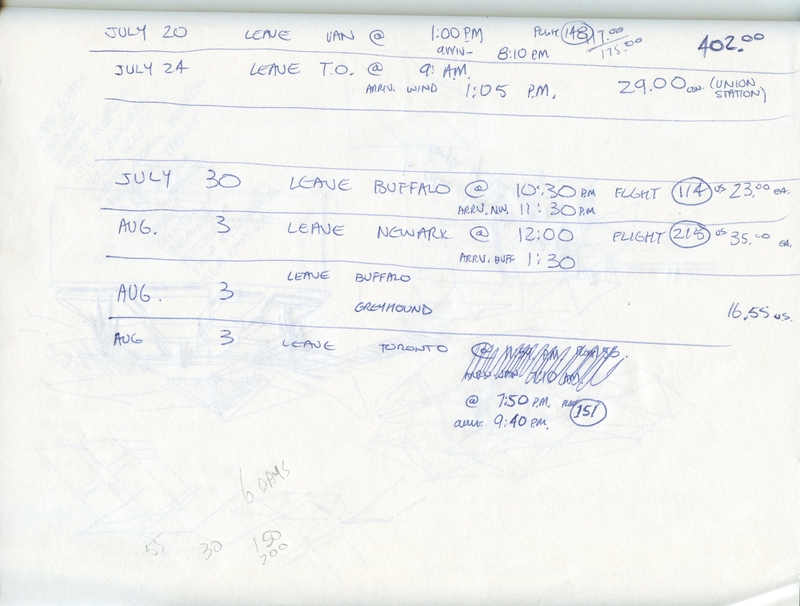 JULY 20 LEAVE VAN @ 1:00 PM FLIGHT 148 402.00
ARRIV- 8:10 PM 175.00
JULY 24 LEAVE T.O. @ 9: A.M.
ARRIV. WIND 1:05 P.M. 29.00 CON. (UNION STATION)
JULY 30 LEAVE BUFFALO @ 10:30 PM FLIGHT 114 US 23.00 EA.
ARRV. NW. 11:30 P.M
AUG. 3 LEAVE NEWARK @ 12:00 FLIGHT 215 US 35.00 EA.
ARRV. BUFF 1:30
AUG. 3 LEAVE BUFFALO
GREYHOUND 16.55 U.S.
AUG 3 LEAVE TORONTO
@ 7:50 P.M. 151
ARRIV. 9:40 PM.
6 DAYS
55 30 150
200